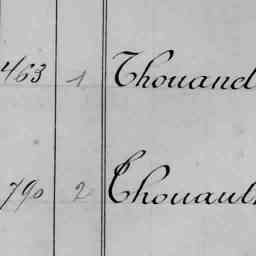 463 1 Thouanel
790 2 Thouault